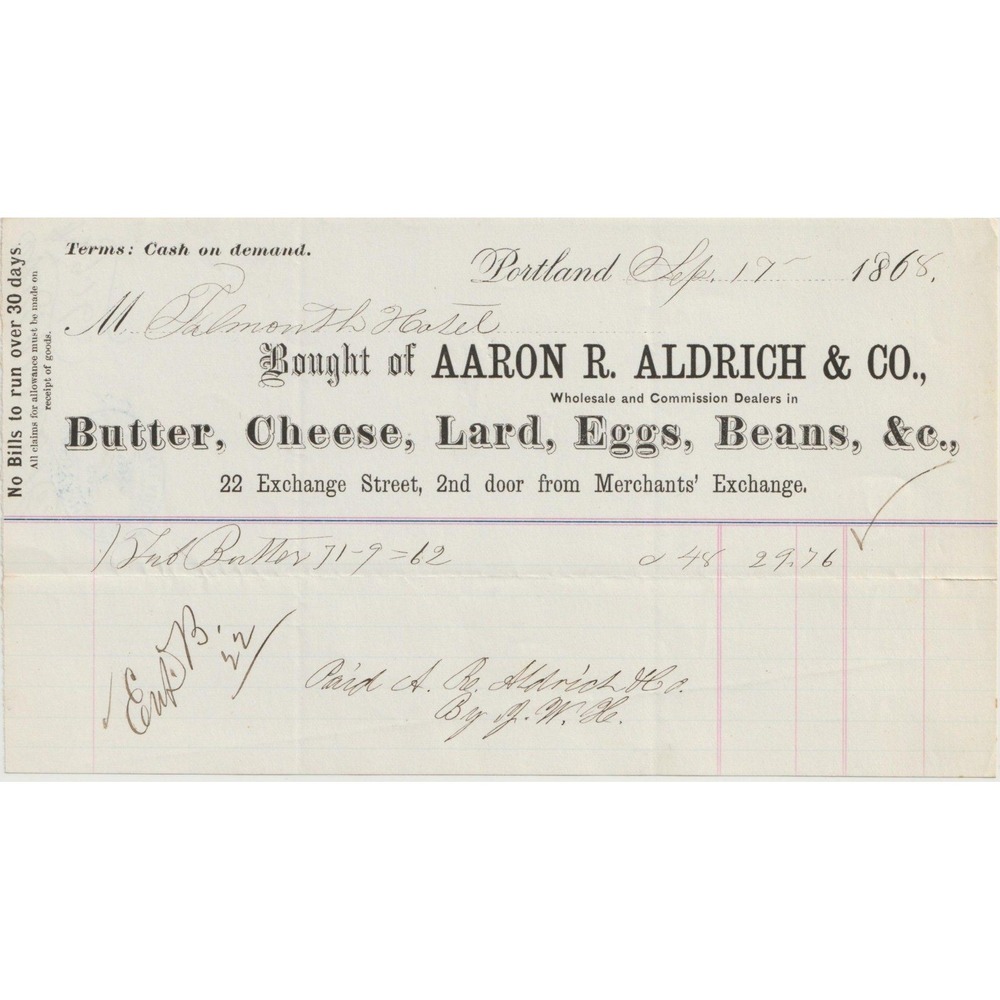 No Bills to run over 30 days.
All claims for allowance must be made on
receipt of goods.
Terms: Cash on demand.
Portland Sep. 17 1868.
M Falmouth Hotel
Bought of AARON R. ALDRICH & CO.,
Wholesale and Commission Dealers in
Butter, Cheese, Lard, Eggs, Beans, &c.,
22 Exchange Street, 2nd door from Merchants' Exchange.
1 Tub Butter 71-9=62 48 29.76
Ent. B. 22
Paid A. R. Aldrich & Co.
By J. W. H.